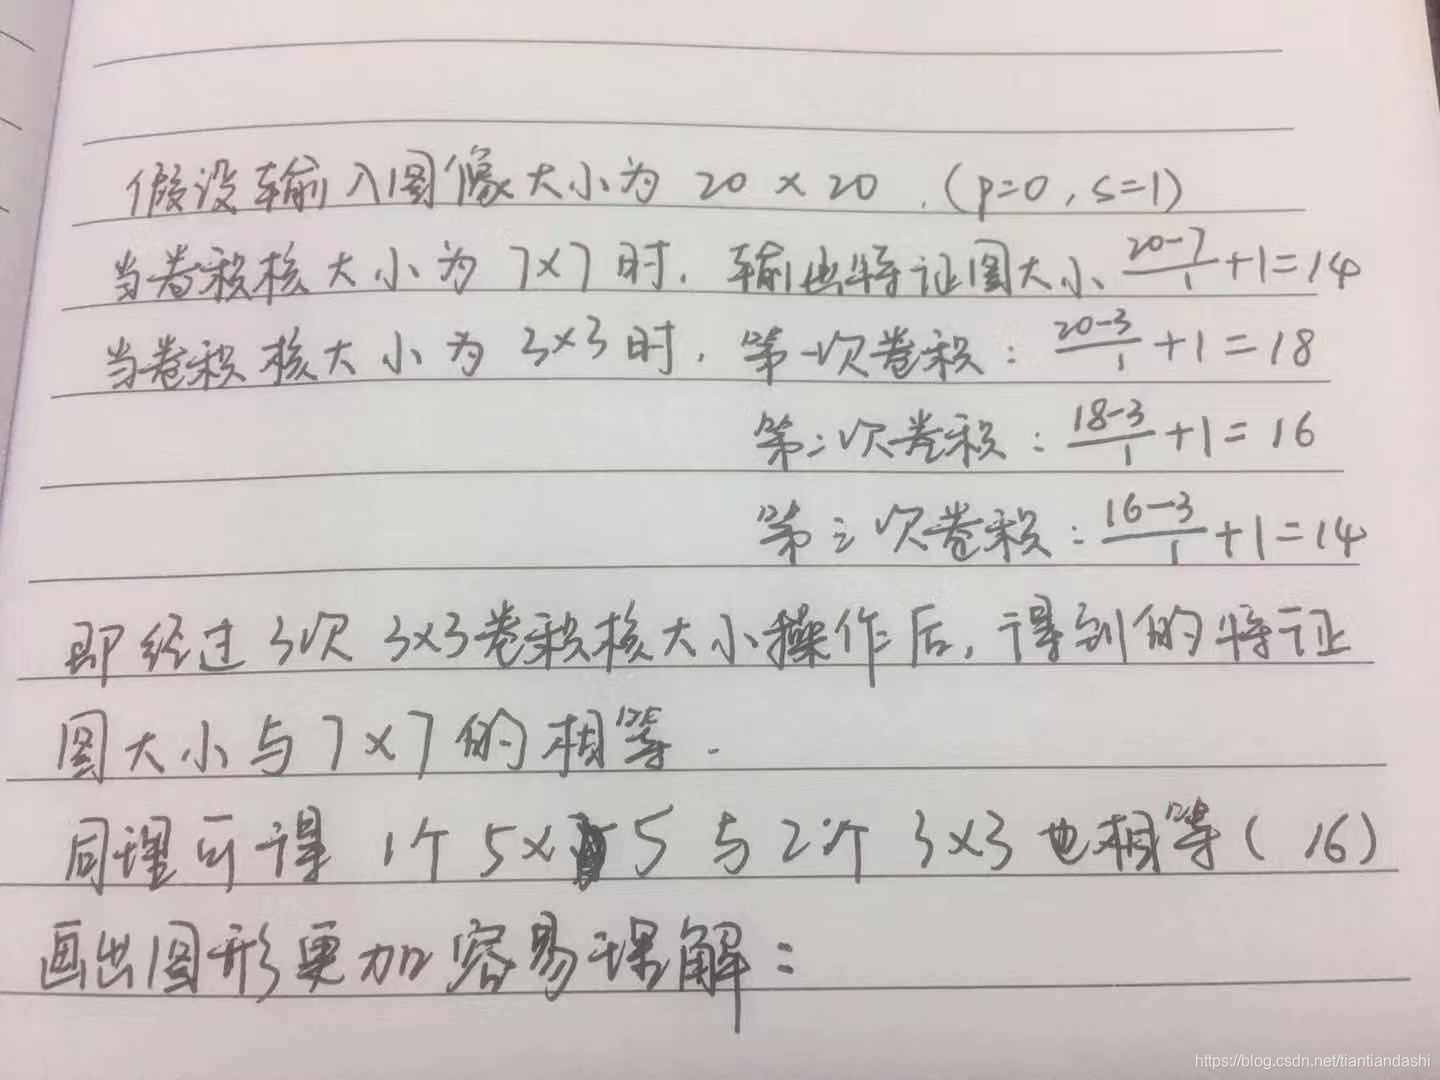 假设输入图像大小为 20 × 20 . (p=0, s=1)
当卷积核大小为 7×7 时, 输出特证图大小 \frac{20-7}{1}+1=14
当卷积核大小为 3×3 时, 第一次卷积: \frac{20-3}{1}+1=18
第二次卷积: \frac{18-3}{1}+1=16
第三次卷积: \frac{16-3}{1}+1=14
即经过3次 3×3卷积核大小操作后, 得到的特证
图大小与7×7的相等.
同理可得 1个 5×5 与2个 3×3 也相等( 16)
画出图形更加容易理解:
https://blog.csdn.net/tiantiandashi